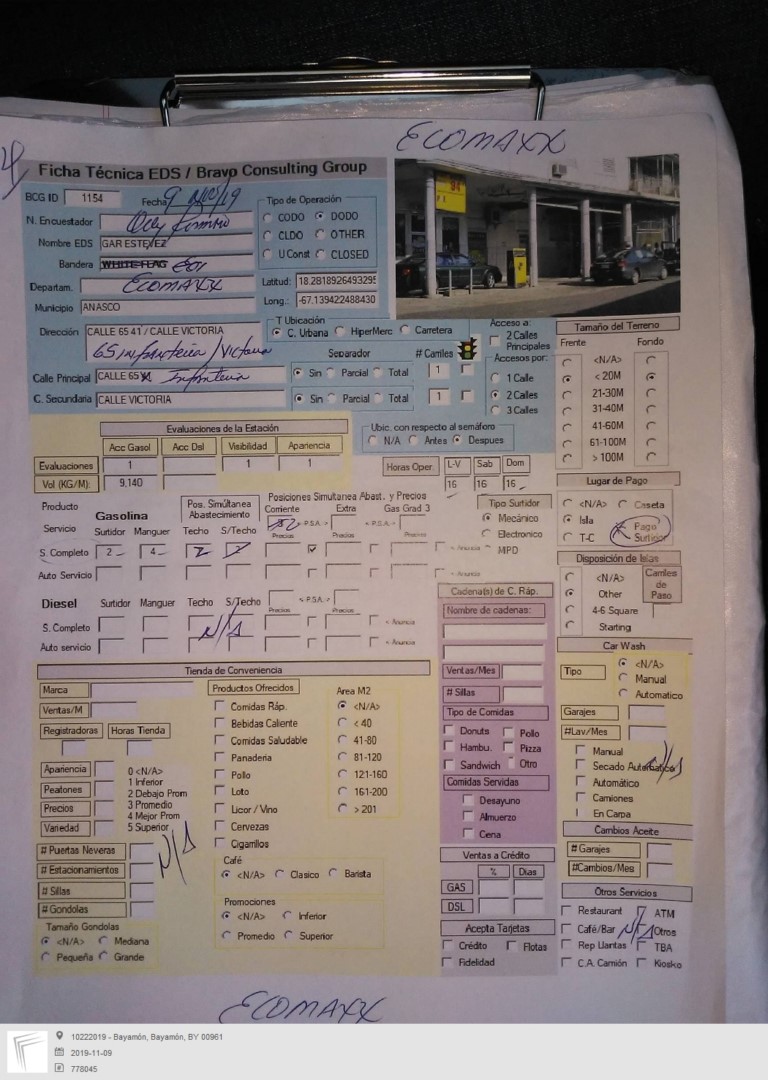 ECOMAXX
Ficha Técnica EDS / Bravo Consulting Group
BCG ID 1154 Fecha 9 Nov/19
N. Encuestador
Nombre EDS GAR ESTEVEZ
Bandera WHITE FLAG
Departam. ECOMAXX
Municipio ANASCO
Tipo de Operación
CODO DODO
CLDO OTHER
U Const CLOSED
Latitud: 18.2818926493295
Long.: -67.139422488430
Dirección CALLE 65 41 / CALLE VICTORIA
65 infanteria / Victoria
Calle Principal CALLE 65 Infanteria
C. Secundaria CALLE VICTORIA
T Ubicación
C. Urbana HiperMerc Carretera
Separador # Carriles
Sin Parcial Total 1
Sin Parcial Total 1
Acceso a:
2 Calles Principales
Accesos por:
1 Calle
2 Calles
3 Calles
Ubic. con respecto al semáforo
N/A Antes Despues
Tamaño del Terreno
Frente Fondo
<N/A>
< 20M
21-30M
31-40M
41-60M
61-100M
> 100M
Evaluaciones de la Estación
Acc Gasol Acc Dsl Visibilidad Apariencia
Evaluaciones 1 1 1
Vol (KG/M): 9,140
Horas Oper. L-V Sab Dom
16 16 16
Lugar de Pago
<N/A> Caseta
Isla Pago Surtidor
T-C
Producto Gasolina
Servicio Surtidor Manguer
Pos. Simultánea Abastecimiento
Techo S/Techo
Posiciones Simultanea Abast. y Precios
Corriente Extra Gas Grad 3
< P.S.A.> < P.S.A.>
Precios Precios Precios
S. Completo 2 4 2 2 < Anuncia
Auto Servicio < Anuncia
Tipo Surtidor
Mecánico
Electronico
MPD
Disposición de Islas
<N/A>
Other
4-6 Square
Starting
Carriles de Paso
Diesel Surtidor Manguer Techo S/Techo < P.S.A.>
Precios Precios
S. Completo N/A < Anuncia
Auto servicio < Anuncia
Cadena(s) de C. Ráp.
Nombre de cadenas:
Ventas/Mes
# Sillas
Tipo de Comidas
Donuts Pollo
Hambu. Pizza
Sandwich Otro
Comidas Servidas
Desayuno
Almuerzo
Cena
Car Wash
Tipo <N/A>
Manual
Automatico
Garajes
#Lav/Mes
Manual
Secado Automatico N/A
Automático
Camiones
En Carpa
Cambios Aceite
# Garajes
#Cambios/Mes
Tienda de Conveniencia
Marca
Ventas/M
Registradoras Horas Tienda
Apariencia
Peatones
Precios
Variedad
0 <N/A>
1 Inferior
2 Debajo Prom
3 Promedio
4 Mejor Prom
5 Superior
# Puertas Neveras
# Estacionamientos
# Sillas
# Gondolas
N/A
Tamaño Gondolas
<N/A> Mediana
Pequeña Grande
Productos Ofrecidos
Comidas Ráp.
Bebidas Caliente
Comidas Saludable
Panaderia
Pollo
Loto
Licor / Vino
Cervezas
Cigarrillos
Area M2
<N/A>
< 40
41-80
81-120
121-160
161-200
> 201
Café
<N/A> Clasico Barista
Promociones
<N/A> Inferior
Promedio Superior
Ventas a Crédito
% Dias
GAS
DSL
Acepta Tarjetas
Crédito Flotas
Fidelidad
Otros Servicios
Restaurant ATM
Café/Bar N/A Otros
Rep Llantas TBA
C.A. Camión Kiosko
ECOMAXX
10222019 - Bayamón, Bayamón, BY 00961
2019-11-09
778045